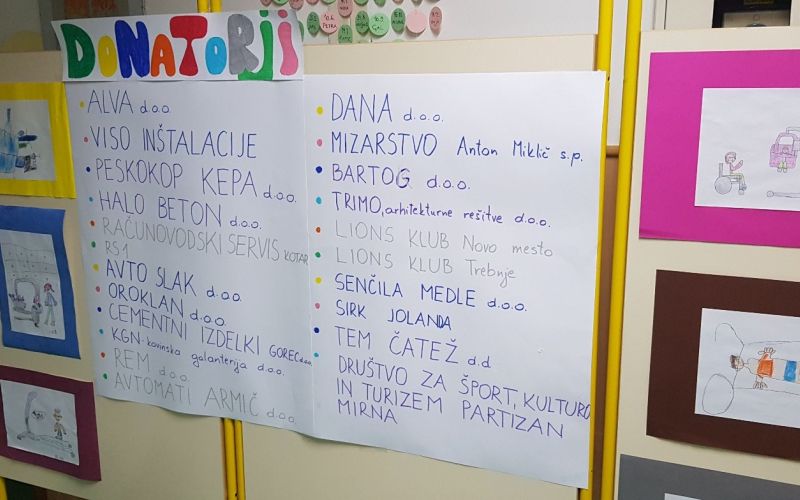 DONATORJI
ALVA d.o.o.
VISO INŠTALACIJE
PESKOKOP KEPA d.o.o.
HALO BETON d.o.o.
RAČUNOVODSKI SERVIS KOTAR
RS1
AVTO SLAK d.o.o.
OROKLAN d.o.o.
CEMENTNI IZDELKI GOREC d.o.o.
KGN-kovinska galanterija d.o.o.
REM d.o.o.
AVTOMATI ARMIČ d.o.o.
DANA d.o.o.
MIZARSTVO Anton Miklič s.p.
BARTOG d.o.o.
TRIMO, arhitekturne rešitve d.o.o.
LIONS KLUB Novo mesto
LIONS KLUB Trebnje
SENČILA MEDLE d.o.o.
SIRK JOLANDA
TEM ČATEŽ d.d.
DRUŠTVO ZA ŠPORT, KULTURO
IN TURIZEM PARTIZAN
MIRNA